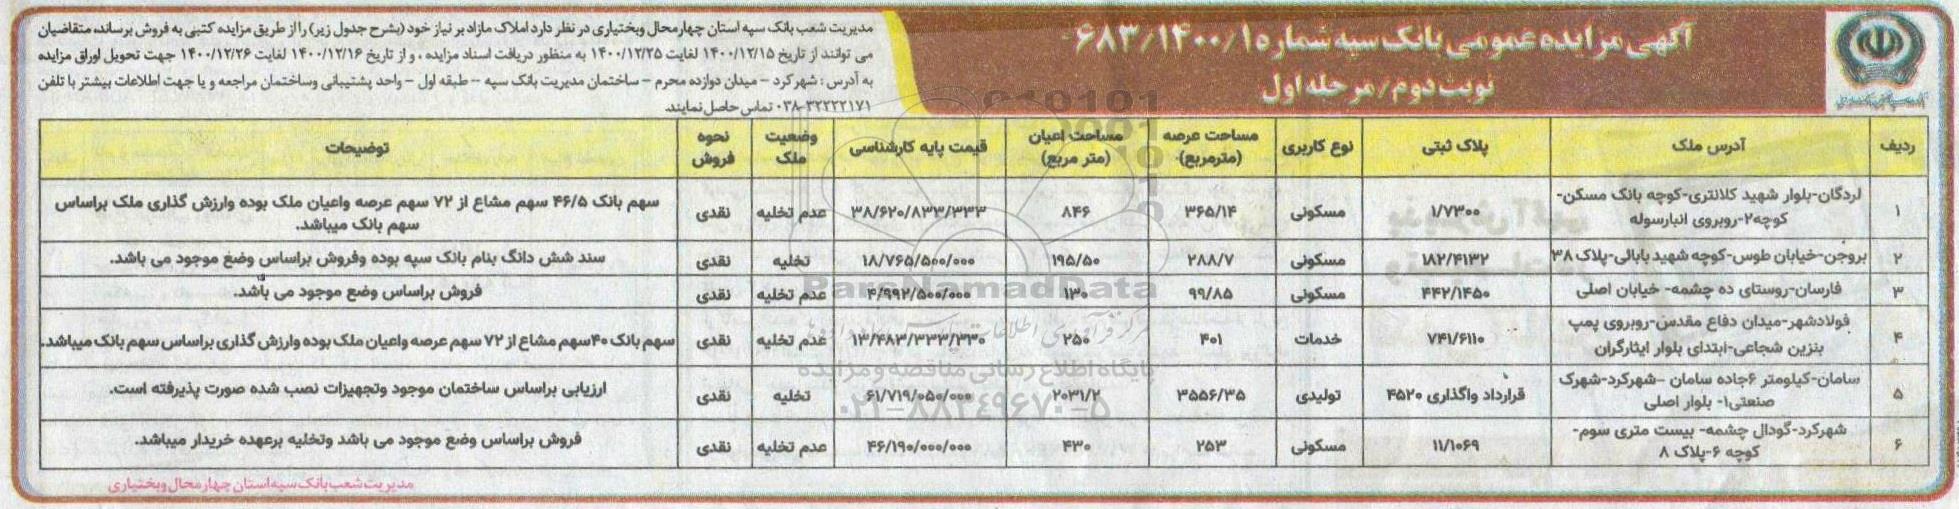 آگهی مزایده عمومی بانک سپه شماره ۶۸۳/۱۴۰۰/۱
نوبت دوم/مرحله اول
مدیریت شعب بانک سپه استان چهارمحال وبختیاری در نظر دارد املاک مازاد بر نیاز خود (بشرح جدول زیر) را از طریق مزایده کتبی به فروش برساند، متقاضیان
می توانند از تاریخ ۱۴۰۰/۱۲/۱۵ لغایت ۱۴۰۰/۱۲/۲۵ به منظور دریافت اسناد مزایده ، و از تاریخ ۱۴۰۰/۱۲/۱۶ لغایت ۱۴۰۰/۱۲/۲۶ جهت تحویل اوراق مزایده
به آدرس : شهرکرد – میدان دوازده محرم – ساختمان مدیریت بانک سپه – طبقه اول – واحد پشتیبانی وساختمان مراجعه و یا جهت اطلاعات بیشتر با تلفن
۰۳۸-۳۲۲۲۲۱۷۱ تماس حاصل نمایند.
ردیف آدرس ملک پلاک ثبتی نوع کاربری مساحت عرصه (مترمربع) مساحت اعیان (متر مربع) قیمت پایه کارشناسی وضعیت ملک نحوه فروش توضیحات
۱ لردگان-بلوار شهید کلانتری-کوچه بانک مسکن-کوچه۲-روبروی انبارسوله ۱/۷۳۰۰ مسکونی ۳۶۵/۱۴ ۸۴۶ ۳۸/۶۲۰/۸۳۳/۳۳۳ عدم تخلیه نقدی سهم بانک ۴۶/۵ سهم مشاع از ۷۲ سهم عرصه واعیان ملک بوده وارزش گذاری ملک براساس سهم بانک میباشد.
۲ بروجن-خیابان طوس-کوچه شهید بابائی-پلاک ۳۸ ۱۸۲/۴۱۳۲ مسکونی ۲۸۸/۷ ۱۹۵/۵۰ ۱۸/۷۶۵/۵۰۰/۰۰۰ تخلیه نقدی سند شش دانگ بنام بانک سپه بوده وفروش براساس وضع موجود می باشد.
۳ فارسان-روستای ده چشمه- خیابان اصلی ۴۴۲/۱۴۵۰ مسکونی ۹۹/۸۵ ۱۳۰ ۴/۹۹۲/۵۰۰/۰۰۰ عدم تخلیه نقدی فروش براساس وضع موجود می باشد.
۴ فولادشهر-میدان دفاع مقدس-روبروی پمپ بنزین شجاعی-ابتدای بلوار ایثارگران ۷۴۱/۶۱۱۰ خدمات ۴۰۱ ۲۵۰ ۱۳/۴۸۳/۳۳۳/۳۳۰ عدم تخلیه نقدی سهم بانک ۴۰سهم مشاع از ۷۲ سهم عرصه واعیان ملک بوده وارزش گذاری براساس سهم بانک میباشد.
۵ سامان-کیلومتر ۶جاده سامان –شهرکرد-شهرک صنعتی۱- بلوار اصلی قرارداد واگذاری ۴۵۲۰ تولیدی ۳۵۵۶/۳۵ ۲۰۳۱/۲ ۶۱/۷۱۹/۰۵۰/۰۰۰ تخلیه نقدی ارزیابی براساس ساختمان موجود وتجهیزات نصب شده صورت پذیرفته است.
۶ شهرکرد-گودال چشمه- بیست متری سوم-کوچه ۶-پلاک ۸ ۱۱/۱۰۶۹ مسکونی ۲۵۳ ۴۳۰ ۴۶/۱۹۰/۰۰۰/۰۰۰ عدم تخلیه نقدی فروش براساس وضع موجود می باشد وتخلیه برعهده خریدار میباشد.
مدیریت شعب بانک سپه استان چهارمحال وبختیاری
ParsNamadData
پایگاه اطلاع رسانی مناقصه و مزایده
۰۲۱-۸۸۳۴۹۶۷۰-۵